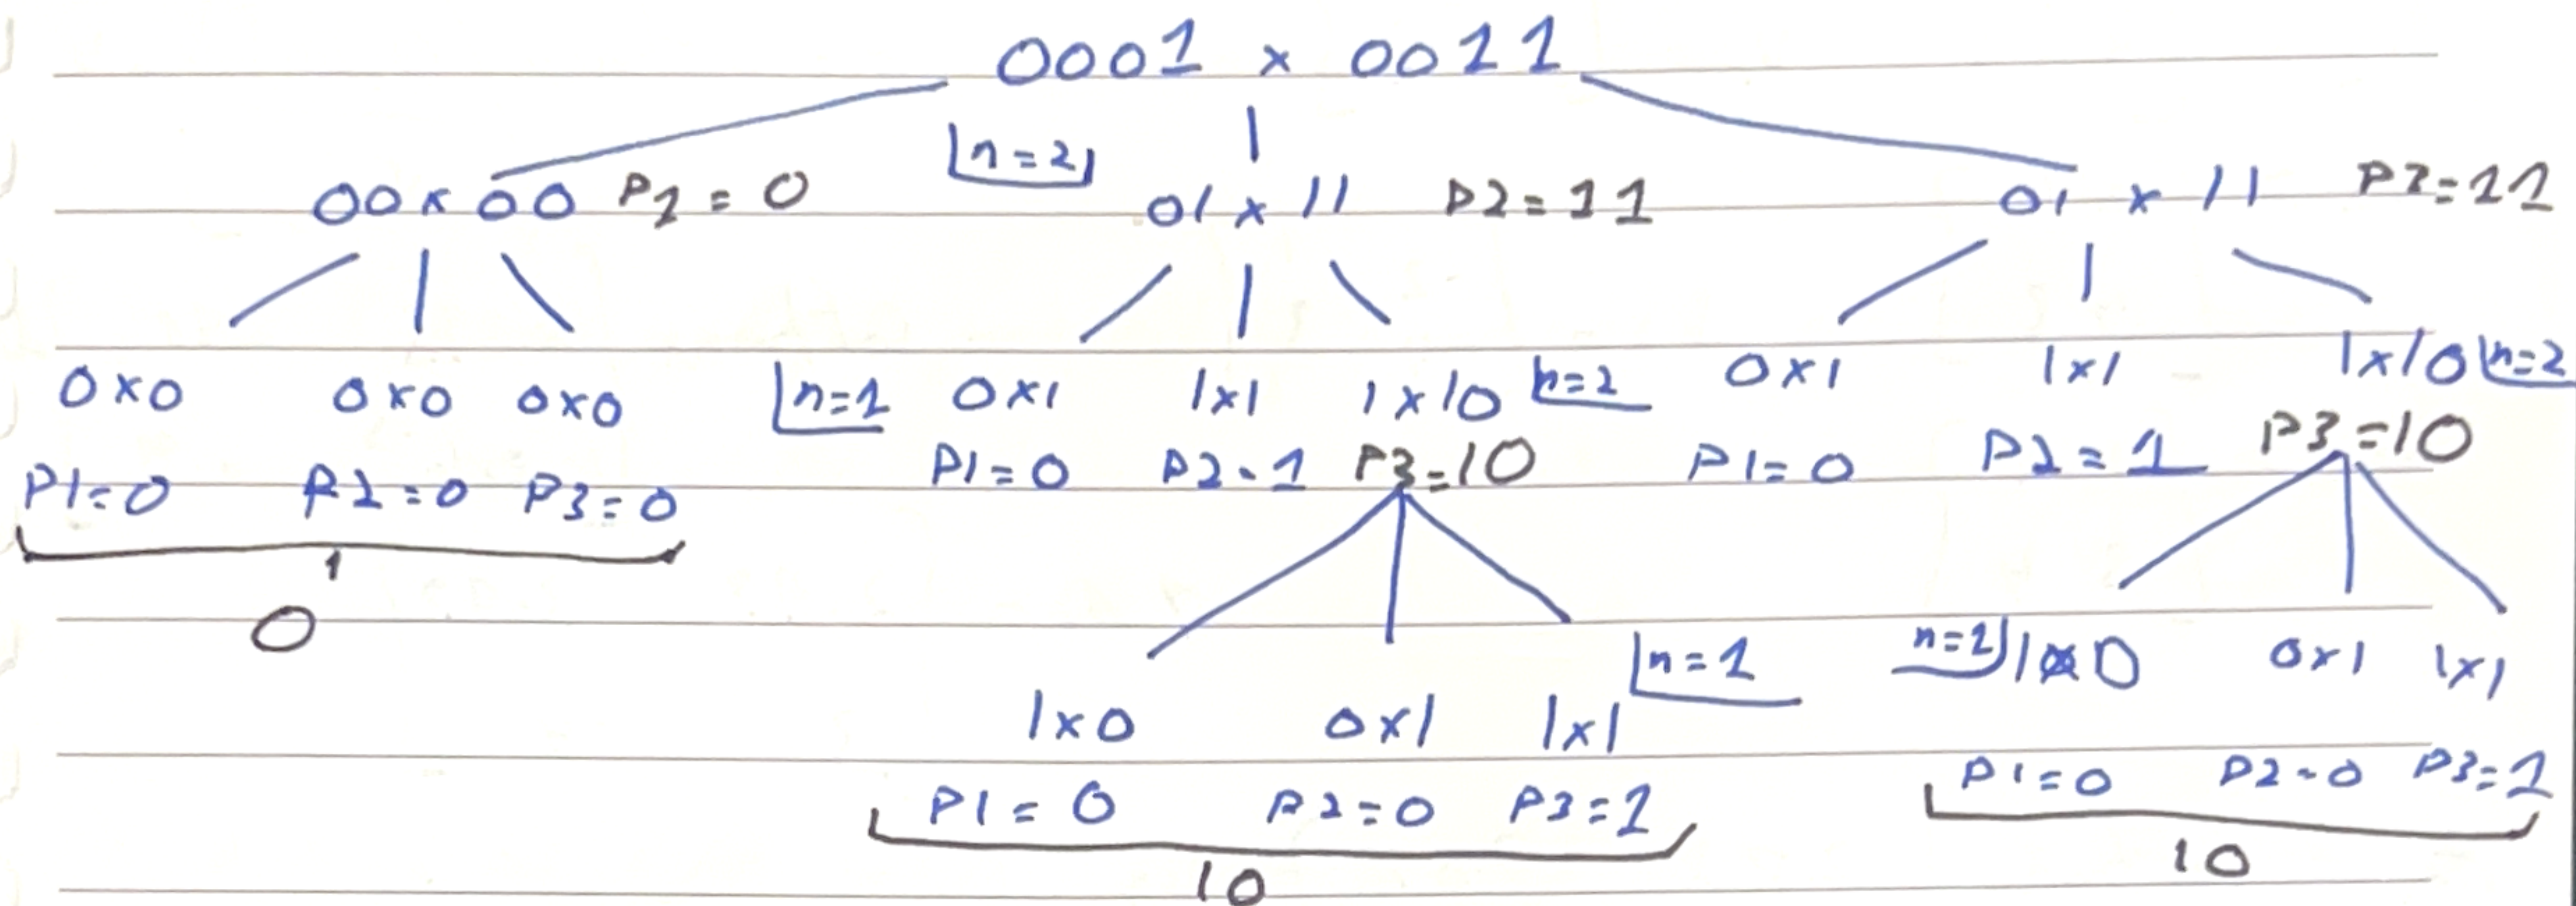 0001 x 0011
n=2
00 x 00 P1 = 0 01 x 11 P2 = 11 01 x 11 P3=11
0x0 0x0 0x0 n=1 0x1 1x1 1x10 n=2 0x1 1x1 1x10 n=2
P1=0 P2=0 P3=0 P1=0 P2=1 P3=10 P1=0 P2=1 P3=10
0
1x0 0x1 1x1 n=1 n=1 1x0 0x1 1x1
P1=0 P2=0 P3=1 P1=0 P2=0 P3=1
10 10